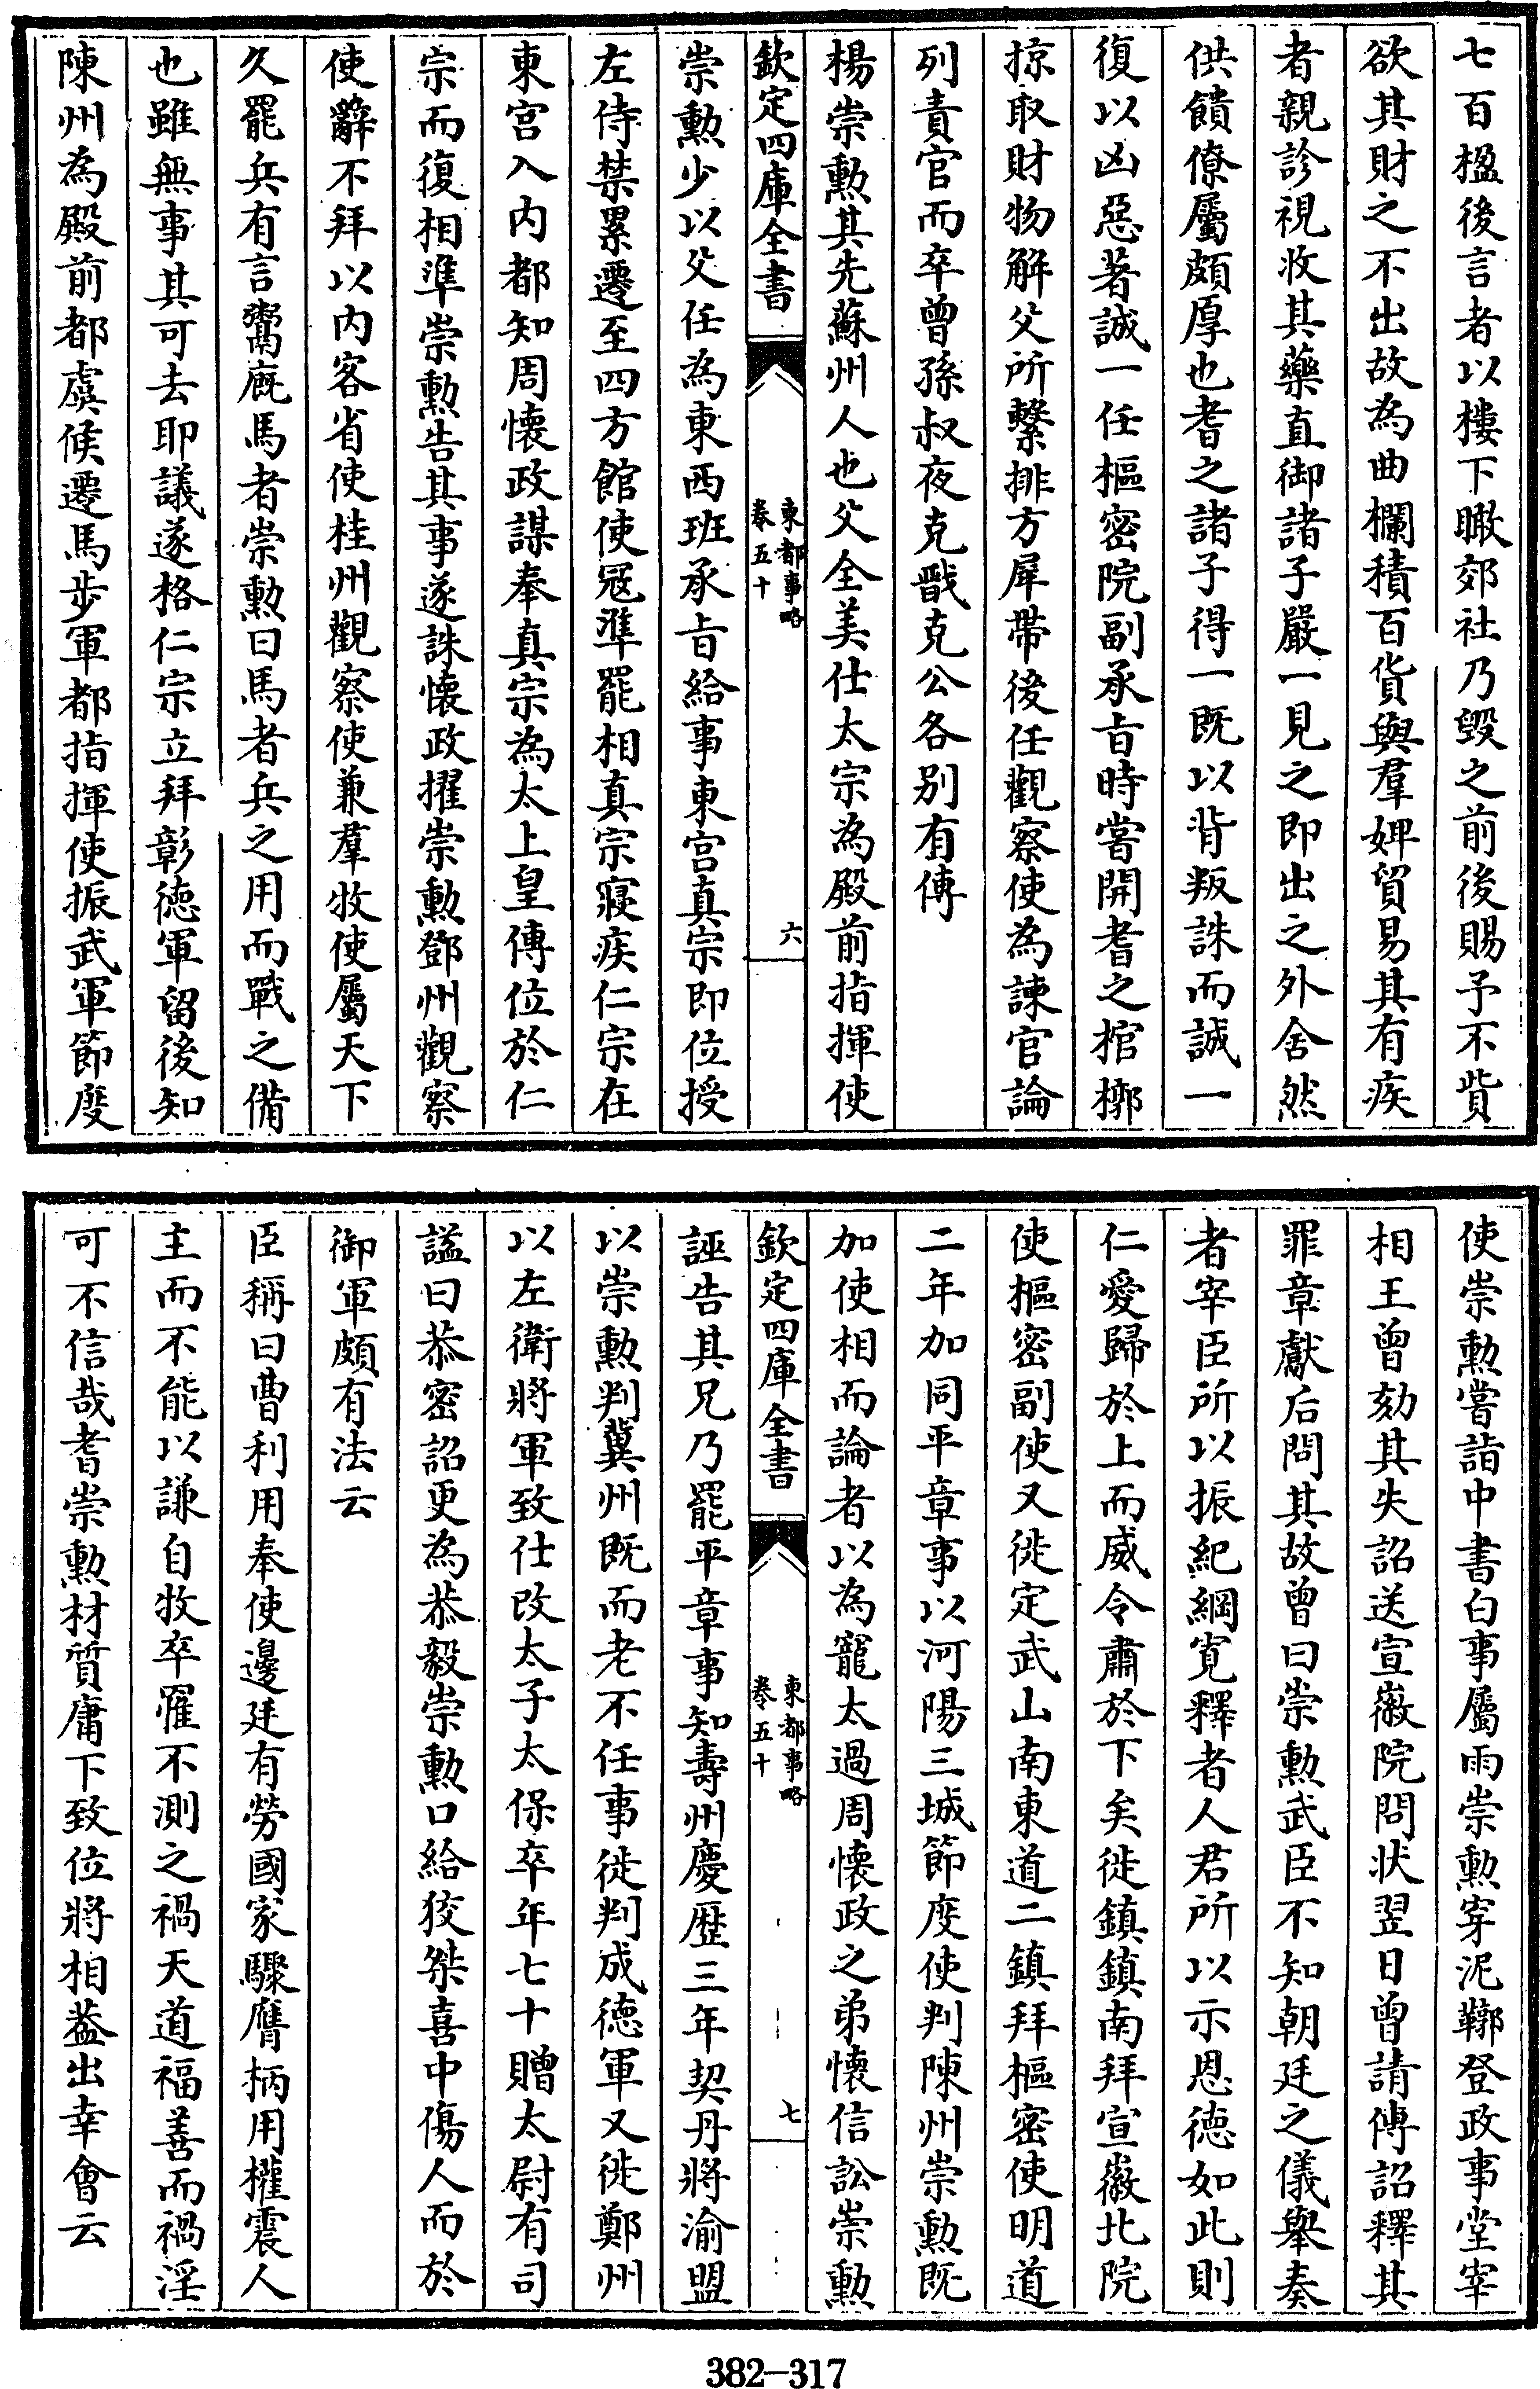 七百楹後言者以樓下瞰郊社乃毀之前後賜予不貲
欲其財之不出故為曲欄積百貨與羣婢貿易其有疾
者親診視收其藥直御諸子嚴一見之即出之外舍然
供饋僚屬頗厚也耆之諸子得一既以背叛誅而誠一
復以凶惡著誠一任樞密院副承旨時嘗開耆之棺槨
掠取財物解父所繫排方犀帶後任觀察使為諫官論
列責官而卒曾孫叔夜克戩克公各別有傳
楊崇勳其先蘇州人也父全美仕太宗為殿前指揮使
欽定四庫全書 東都事略 卷五十 六
崇勳少以父任為東西班承旨給事東宮真宗即位授
左侍禁累遷至四方館使冦準罷相真宗寢疾仁宗在
東宮入内都知周懷政謀奉真宗為太上皇傳位於仁
宗而復相準崇勳告其事遂誅懷政擢崇勳鄧州觀察
使辭不拜以内客省使桂州觀察使兼羣牧使屬天下
久罷兵有言鬻廐馬者崇勳曰馬者兵之用而戰之備
也雖無事其可去耶議遂格仁宗立拜彰德軍留後知
陳州為殿前都虞候遷馬步軍都指揮使振武軍節度
使崇勳嘗詣中書白事屬雨崇勳穿泥鞹登政事堂宰
相王曾劾其失詔送宣徽院問狀翌日曾請傳詔釋其
罪章獻后問其故曾曰崇勳武臣不知朝廷之儀舉奏
者宰臣所以振紀綱寛釋者人君所以示恩德如此則
仁愛歸於上而威令肅於下矣徙鎮鎮南拜宣徽北院
使樞密副使又徙定武山南東道二鎮拜樞密使明道
二年加同平章事以河陽三城節度使判陳州崇勳既
加使相而論者以為寵太過周懷政之弟懷信訟崇勳
欽定四庫全書 東都事略 卷五十 七
誣告其兄乃罷平章事知壽州慶歷三年契丹將渝盟
以崇勳判冀州既而老不任事徙判成德軍又徙鄭州
以左衛將軍致仕改太子太保卒年七十贈太尉有司
謚曰恭密詔更為恭毅崇勳口給狡桀喜中傷人而於
御軍頗有法云
臣稱曰曹利用奉使邊廷有勞國家驟膺柄用權震人
主而不能以謙自牧卒罹不測之禍天道福善而禍淫
可不信哉耆崇勳材質庸下致位將相葢出幸會云
382-317